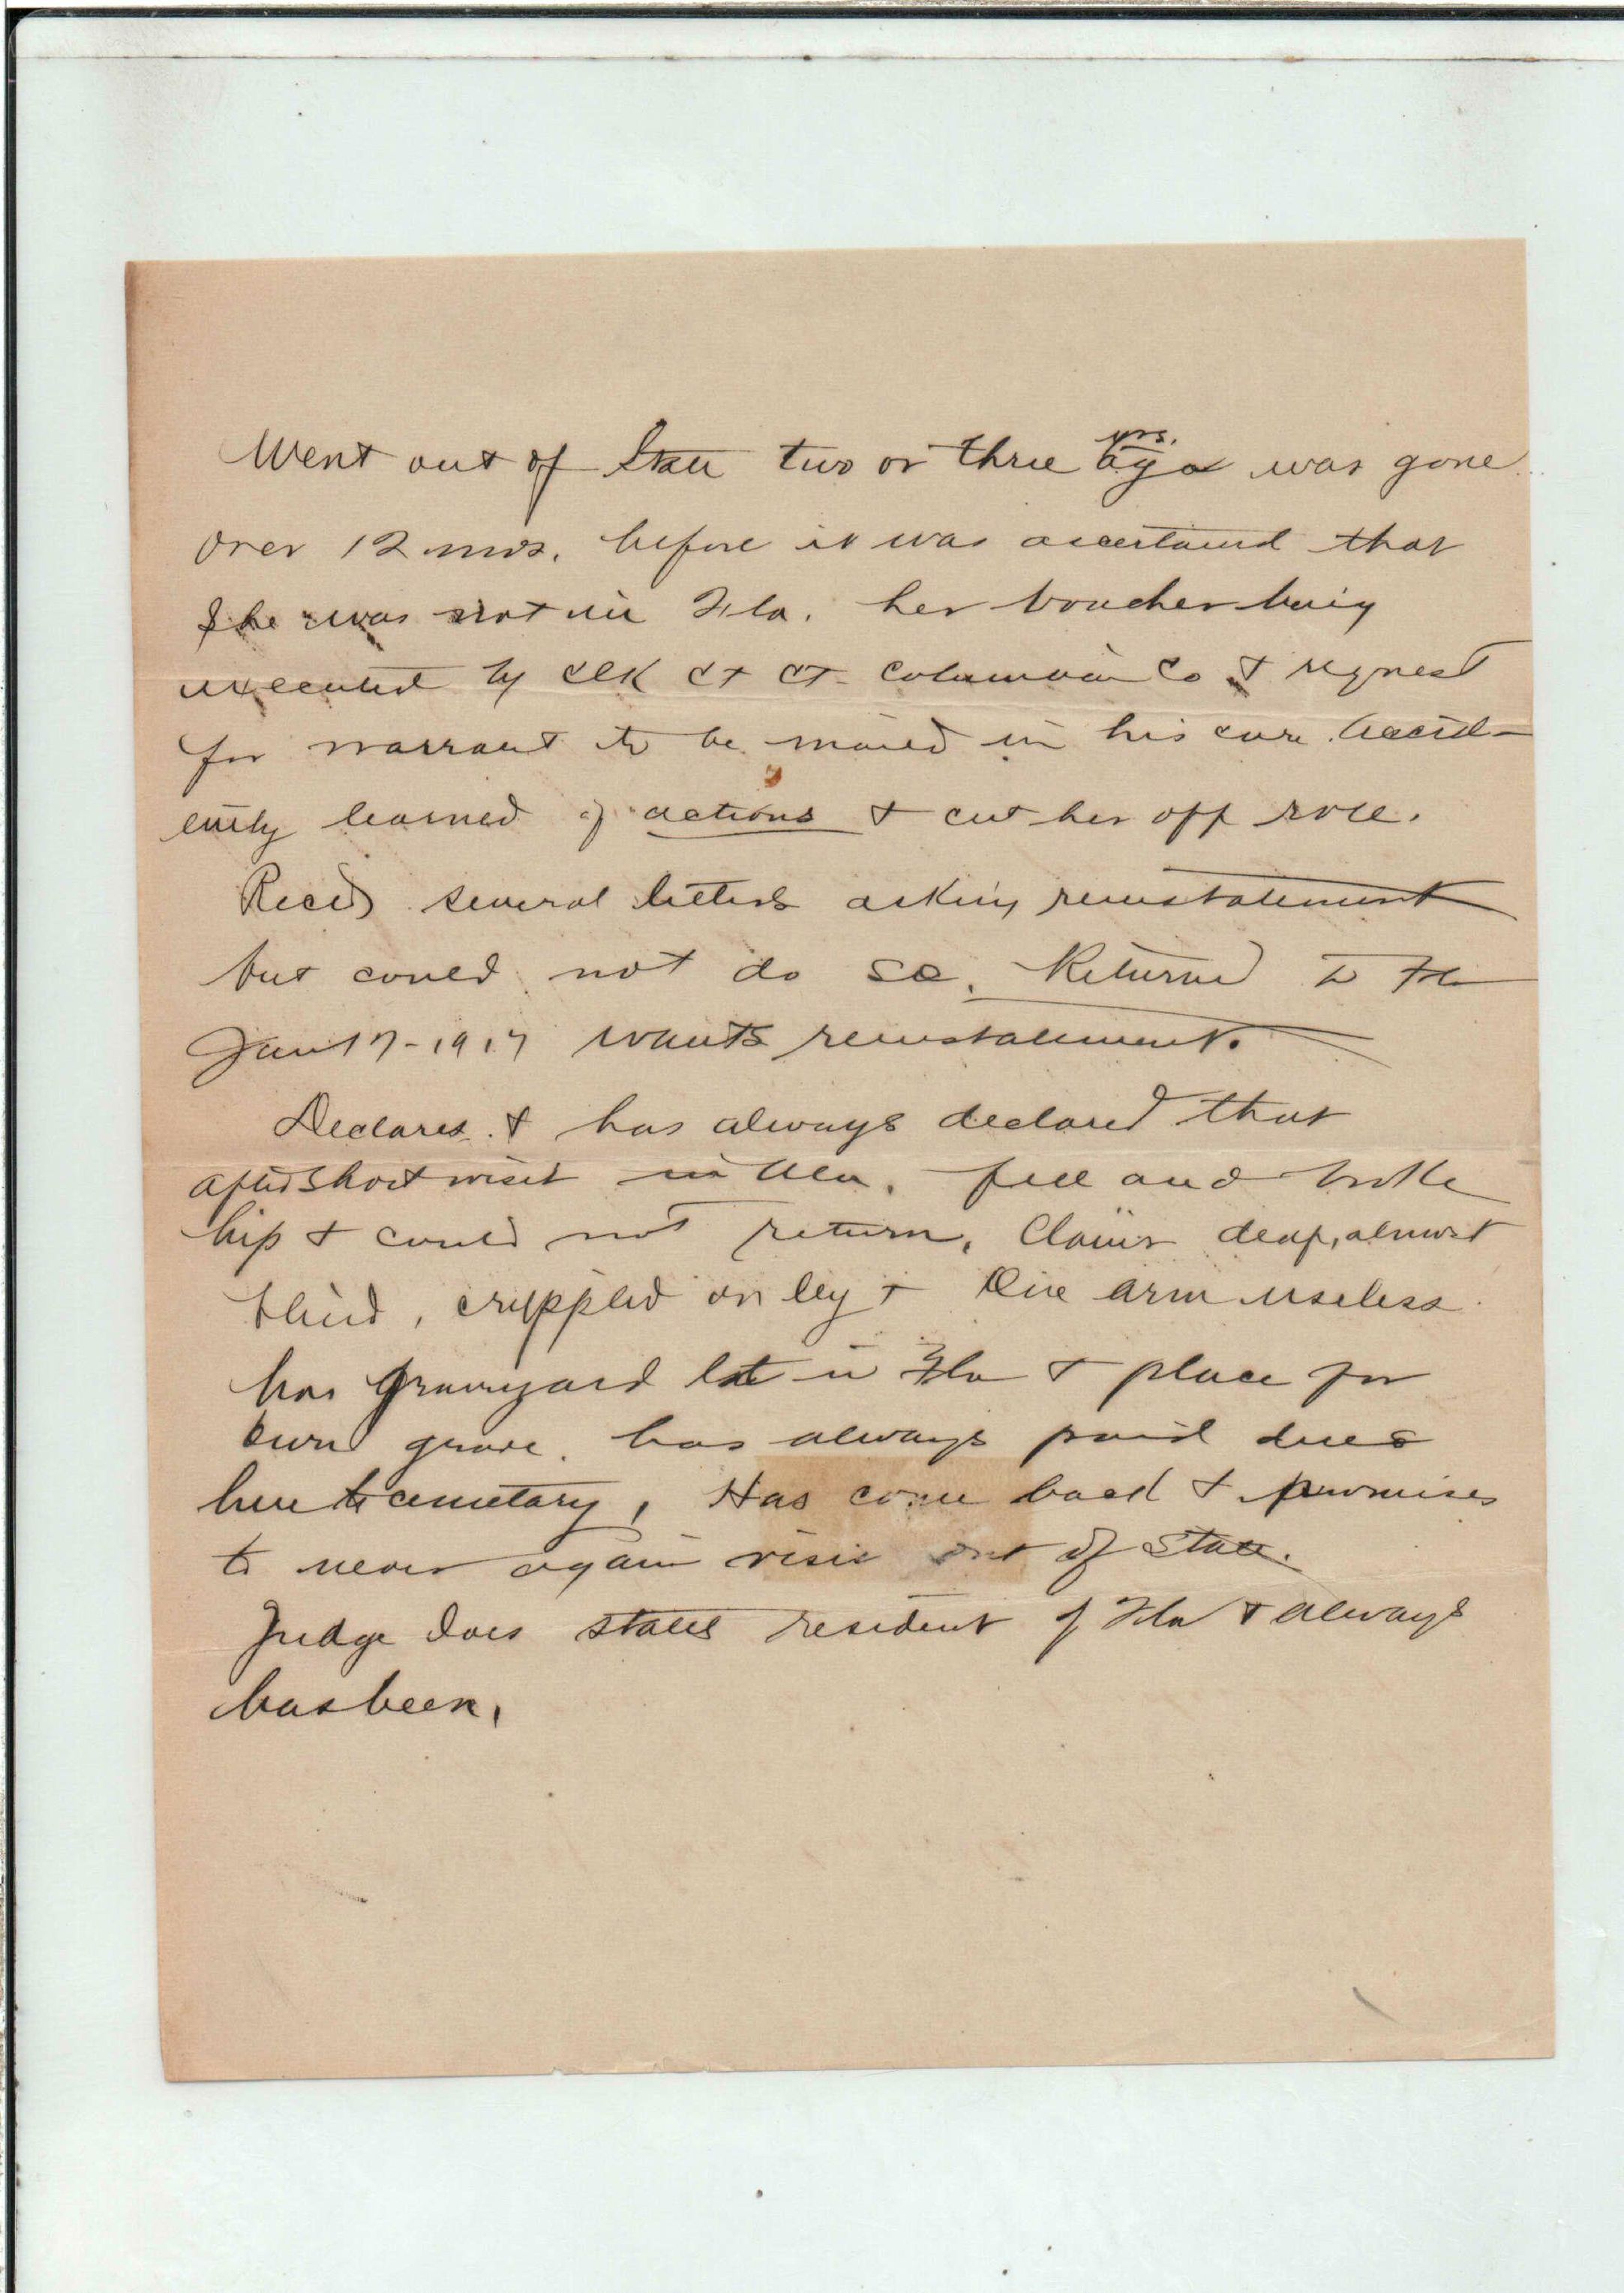 Went out of State two or three yrs. ago was gone
over 12 mos. before it was ascertained that
She was not in Fla. her voucher being
executed by Clk Ct Ct. Columbia Co & request
for warrant to be mailed in his care. Accid-
ently learned of actions & cut her off roll.
Recd several letters asking reinstatement
but could not do so. Returned to Fla
Jan 17-1917 wants reinstatement.
Declares & has always declared that
after short visit in Ala. fell and broke
hip & could not return. Claims deaf, almost
blind, crippled on leg & One arm useless
has graveyard lot in Fla & place for
own grave. has always paid dues
here to cemetary, Has come back & promises
to never again visit out of State.
Judge Ives states resident of Fla & always
has been.